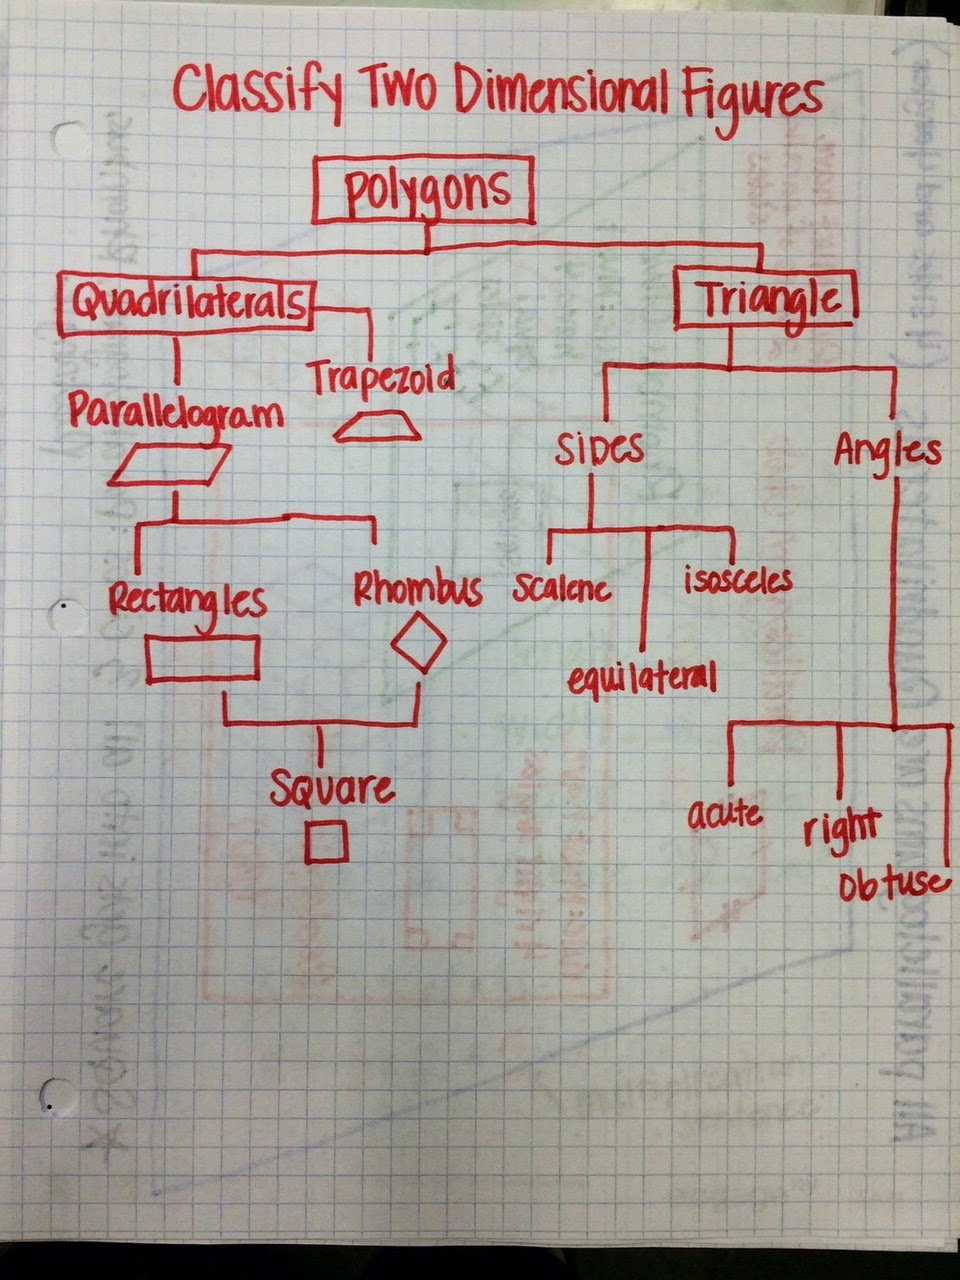 Classify Two Dimensional Figures
Polygons
Quadrilaterals
Triangle
Trapezoid
Parallelogram
Sides
Angles
Rectangles
Rhombus
Scalene
isosceles
equilateral
Square
acute
right
obtuse